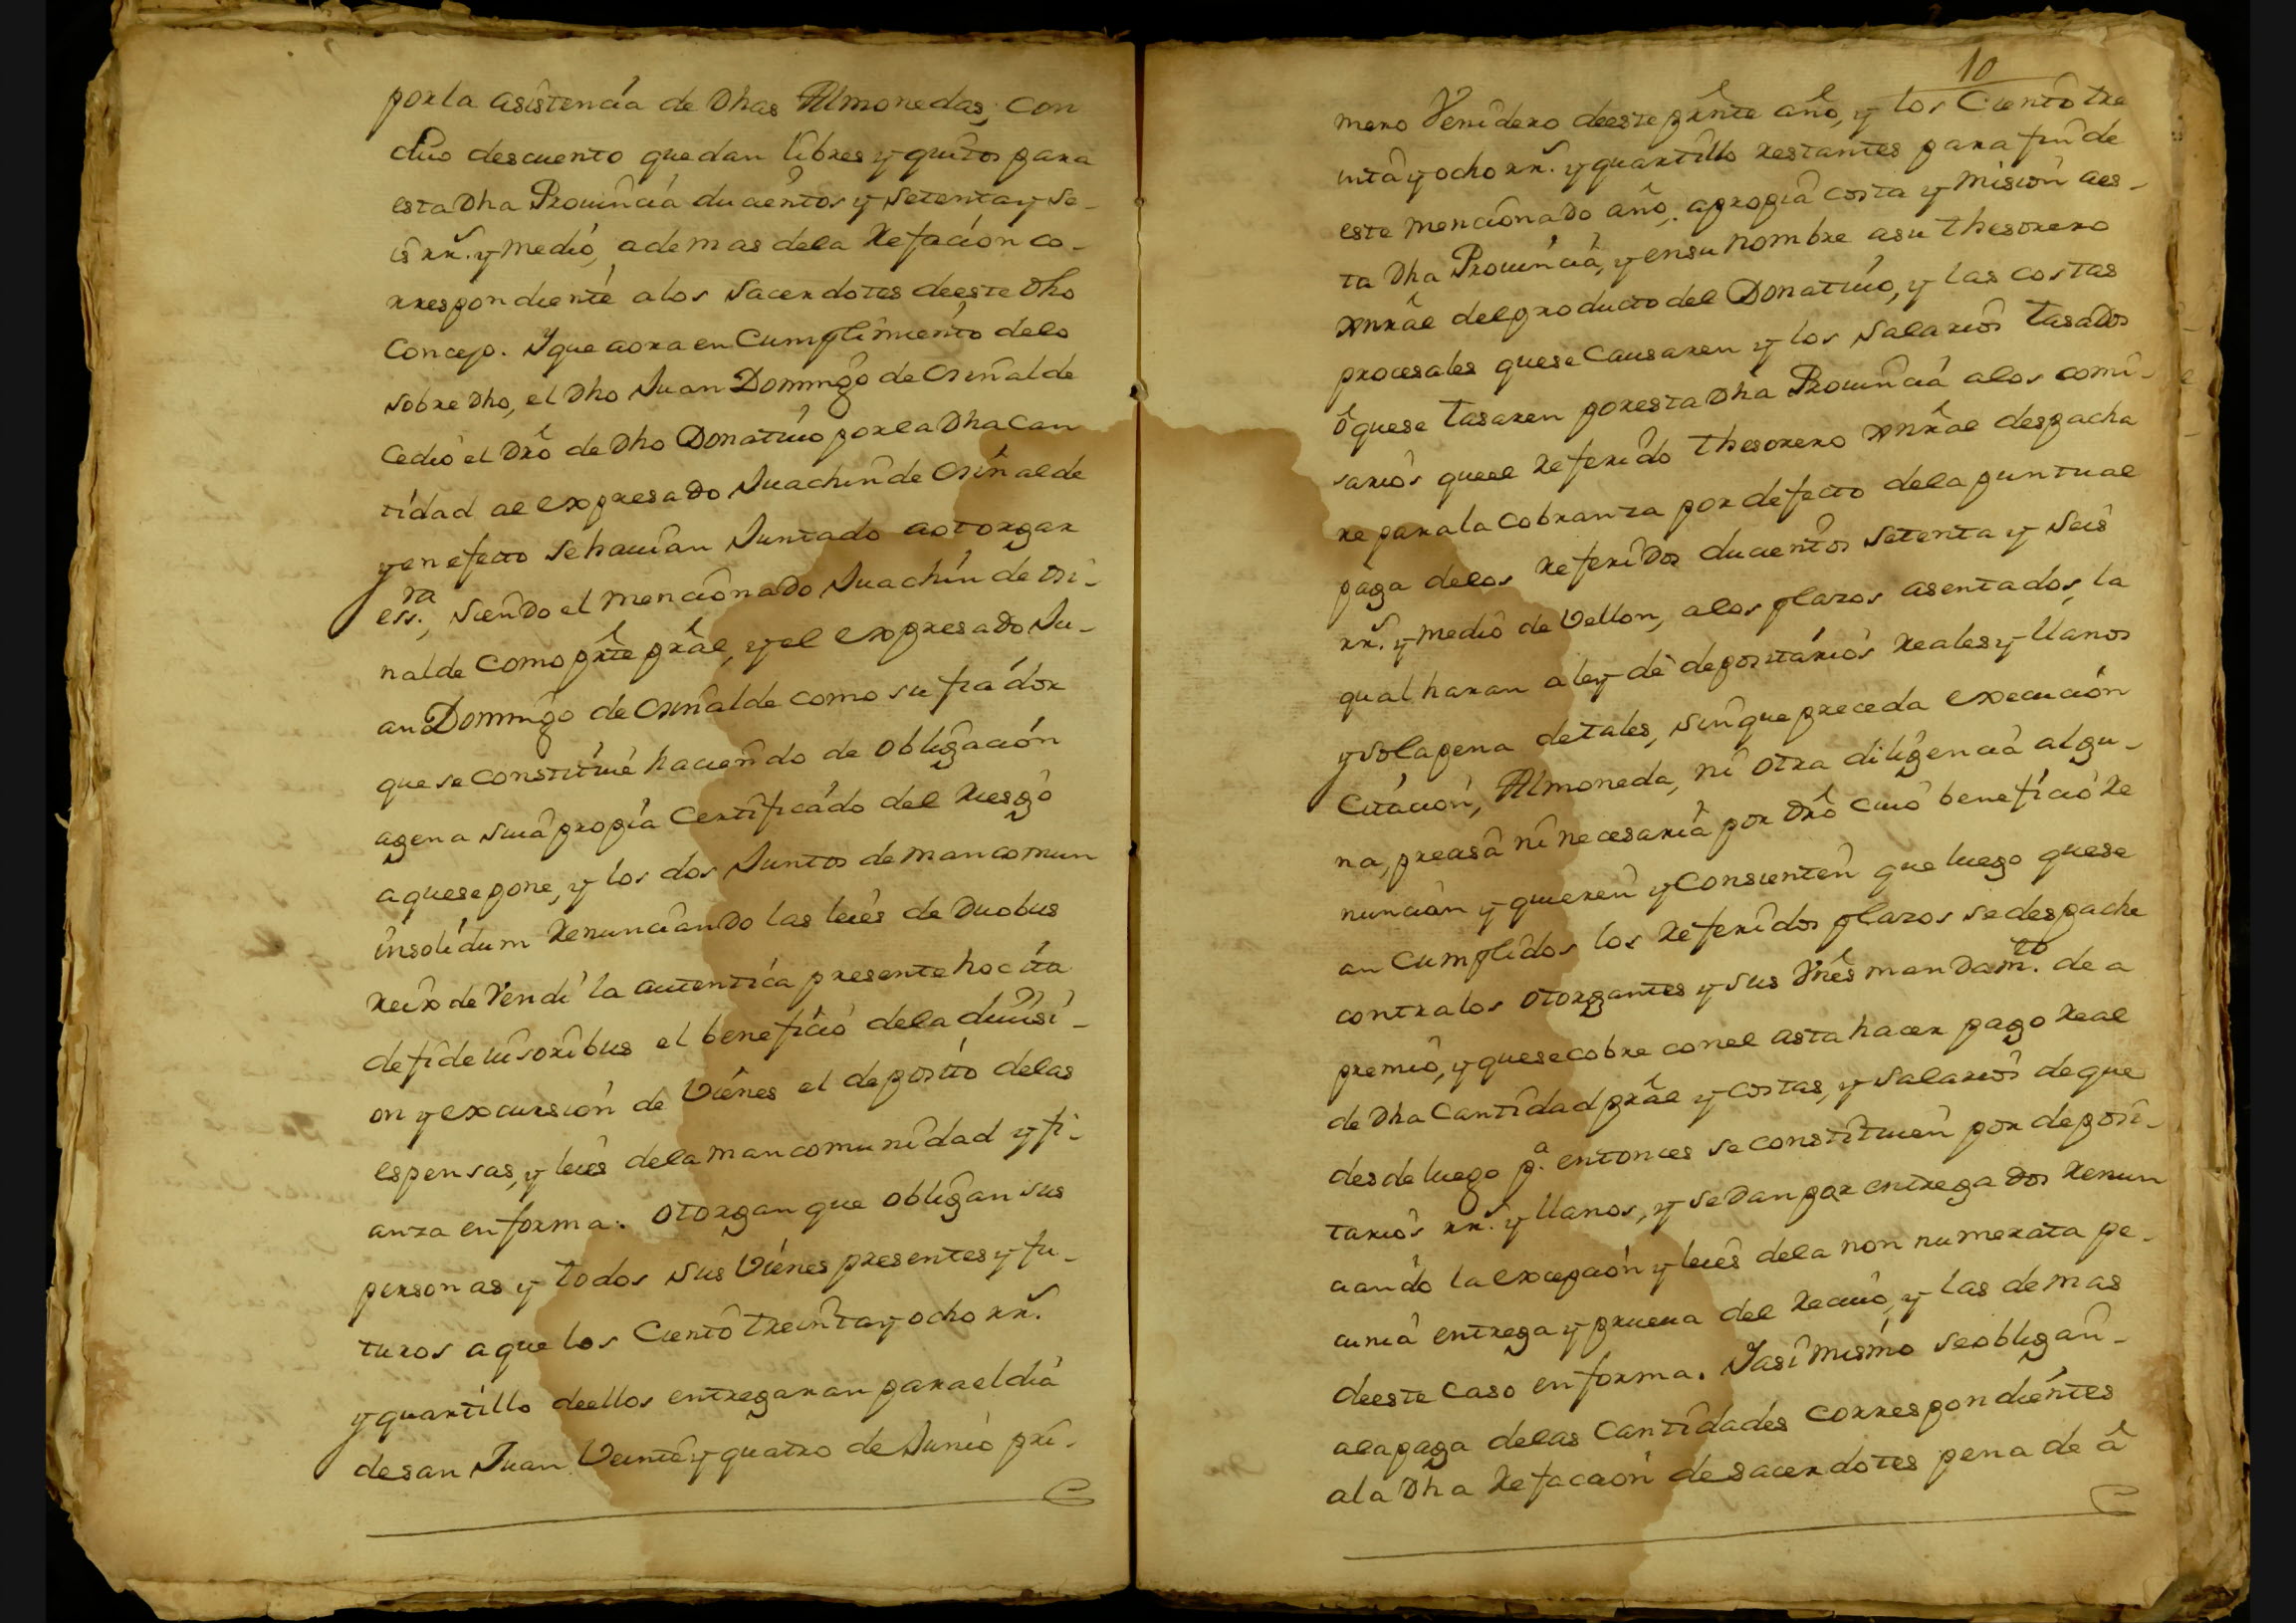 por la asistencia de Dhas Almonedas, con
cuio descuento quedan libres y quitos para
esta Dha Prouincia ducientos y setenta y se-
is rr.ˢ y medio, ademas dela Refacion co-
rrespondiente alos Sacerdotes deeste Dho
Concejo. Y que aora en Cumplimiento delo
sobre Dho, el Dho Juan Domingo de Osinalde
Cedio el Drô de Dho Donatiuo por la Dha Can
tidad al expresado Juachin de Osinalde
y en efecto se hauian Juntado a otorgar
ess.ʳᵃ, siendo el mencionado Juachin de Osi-
nalde como prîte prâl, y el expresado Ju-
an Domingo de Osinalde como su fiador
que se constituie haciendo de obligacion
agena suia propia Certificado del Riesgo
a que se pone, y los dos Juntos de mancomun
insolidum Renunciando las leies de Duobus
Reix de Vendi la autentica presente hoc ita
defide iusoribus el beneficio dela diuisi-
on y excursion de Vienes el deposito delas
espensas, y leies dela mancomunidad y fi-
anza en forma. Otorgan que obligan sus
personas y todos sus Vienes presentes y fu-
turos a que los Ciento treinta y ocho rr.ˢ
y quartillo deellos entregaran para el dia
de san Juan Veinte y quatro de Junio pri-
10
mero Venidero deeste prînte año, y los Ciento tre
inta y ocho rr.ˢ y quartillo restantes para fin de
este mencionado año. a propia costa y mision aes-
ta Dha Prouincia, y en su nombre a su thesorero
xnrâl del producto del Donatiuo, y las costas
procesales que se Causaren y los Salarios tasados
ô que se tasaren por esta Dha Prouincia alos comi-
sarios que el Referido thesorero xnrâl despacha
re para la Cobranza por defecto dela puntual
paga delos Referidos ducientos setenta y seis
rr.ˢ y medio de Vellon, alos plazos asentados, la
qual haran a ley de depositarios Reales y llanos
y so la pena de tales, sin que preceda execucion
Citacion, Almoneda, ni otra diligencia algu-
na, precisa ni necesaria por Drô cuio beneficio Re
nuncian y quieren y Consienten que luego que se
an Cumplidos los Referidos plazos se despache
contra los otorgantes y sus Vnês mandam.ᵗᵒ de a
premio, y que se cobre con el asta hacer pago Real
de Dha Cantidad prâl y costas, y salarios de que
desde luego p.ᵃ entonces se constituien por deposi-
tarios rr.ˢ y llanos, y se Dan por entregados Renun
ciando la excepcion y leies dela non numerata pe-
cunia entrega y prueua del Reciuo, y las demas
deeste Caso en forma. Y asi mismo se obligan-
ala paga delas Cantidades correspondientes
ala Dha Refaccion de sacerdotes pena de â